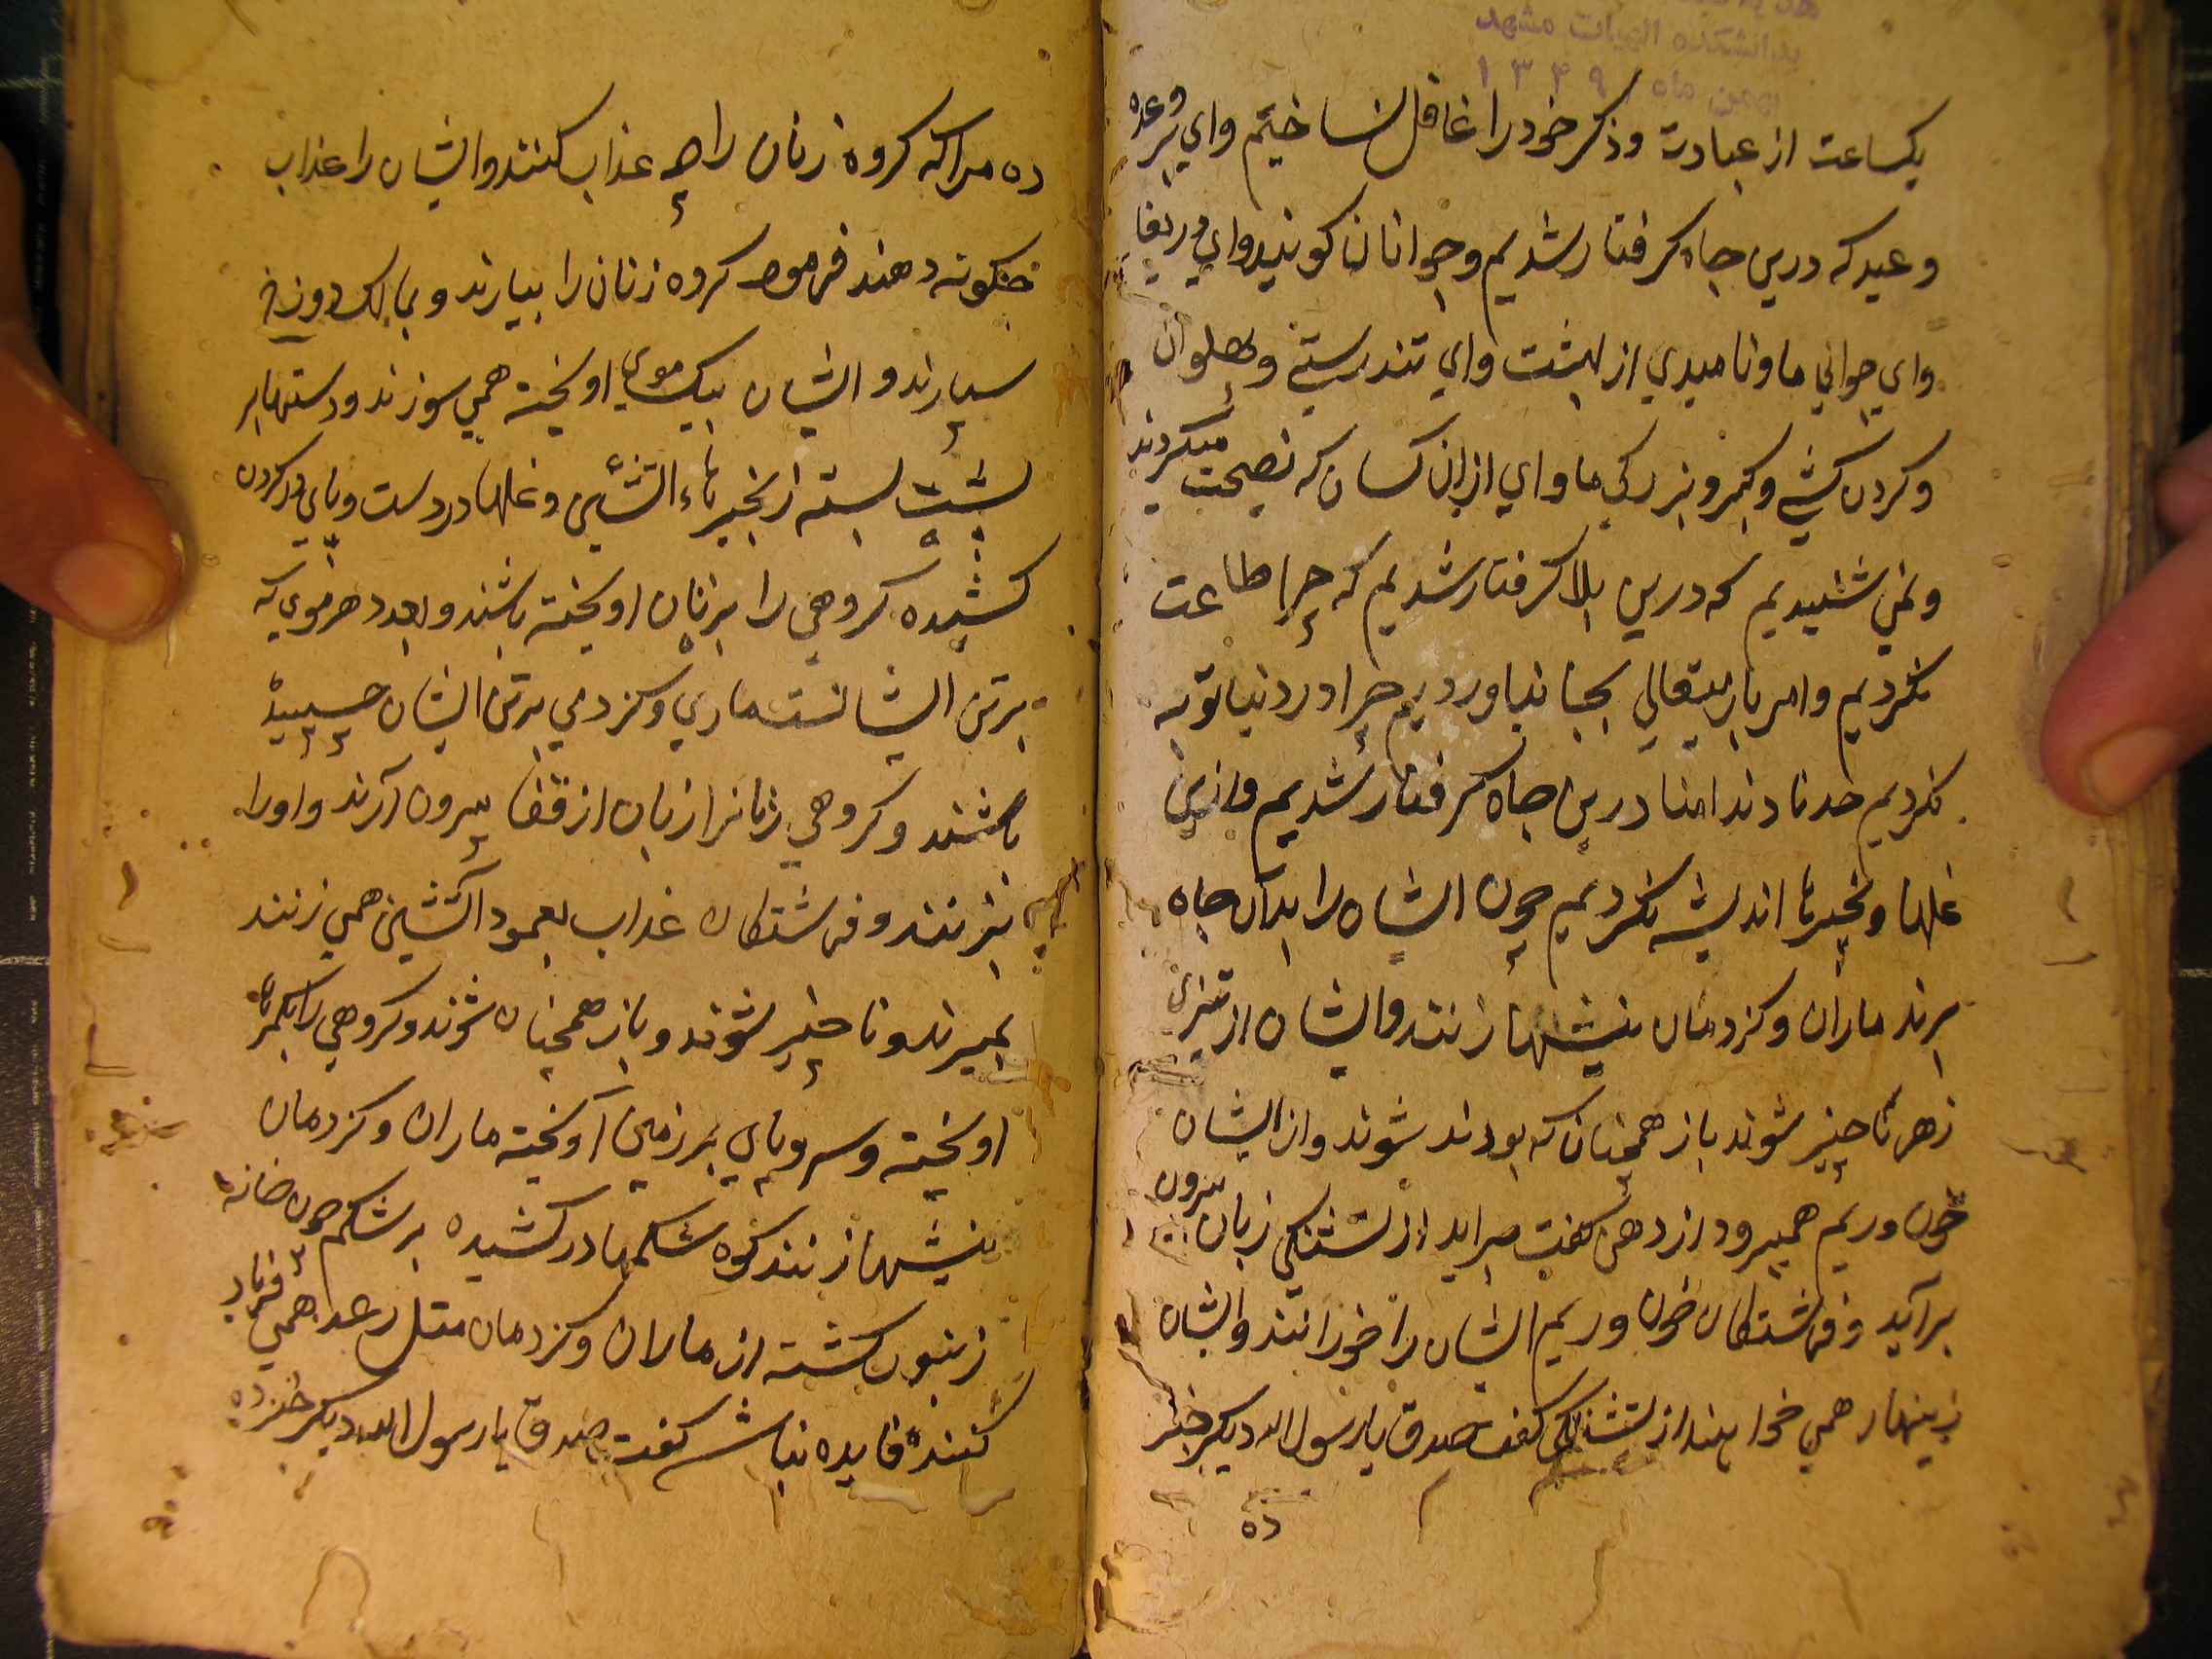 یکساعت از عبادت وذکر خود را غافل نساختیم وای بر وعده
وعید که درین چاه گرفتار شدیم وجوانان کویند وای دریغا
وای جوانی ما ونامیدی از بهشت وای تندرستی وپهلوان
وکردن کشی وکبر وبزرکی ما وای از ان کسان که نصیحت میکردند
ونمی شنیدیم که درین بلا کرفتار شدیم که چرا طاعت
نکردیم وامر باریتعالی بجا نیاوردیم چرا در دنیا توبه
نکردیم درین چاه کرفتار شدیم وازین
غلها وزنجیرها اندیشه نکردیم چون ایشان را بدان چاه
برند ماران وکزدمان نیشها زنند وایشان از تیزی
زهر ناچیز شوند باز همچنان که بودند شوند واز ایشان
خون وریم همیرود از دهن از تشنکی زبان بیرون
برآید وفرشتکان خون وریم ایشان را خورانند وایشان
زینهار همی خواهند از تشنکی کفت صدق یا رسول الله دیکر خبر
ده
ده مرا که کروه زنان را چه عذاب کنند وایشان را عذاب
چکونه دهند فرمود کروه زنان را بیارند وبمالک دوزخ
سپارند وایشان بیک موی اویخته همی سوزند ودستها بر
پشت بسته زنجیرهاء اتشین وغلها در دست وپای در کردن
کشیده کروهی را بزبان اویخته باشند وبعدد هر موی که
بر تن ایشانست ماری وکزدمی بر تن ایشان چسپیده
باشند وکروهی زنانرا زبان از قفا بیرون آرند واورا
وفرشتکان عذاب بعمود اتشین همی زنند
بمیرند وناچیز شوند وباز همچنان شوند وکروهی را
اویخته وسر وپای بر زمین آویخته ماران وکزدمان
نیشها زنند کروه شکمها در کشیده بر شکم چون خانه
زنبور کشته از ماران وکزدمان مثل رعد همی فریاد
کنند فایده نباشد کفت صدق یا رسول الله دیکر خبر ده